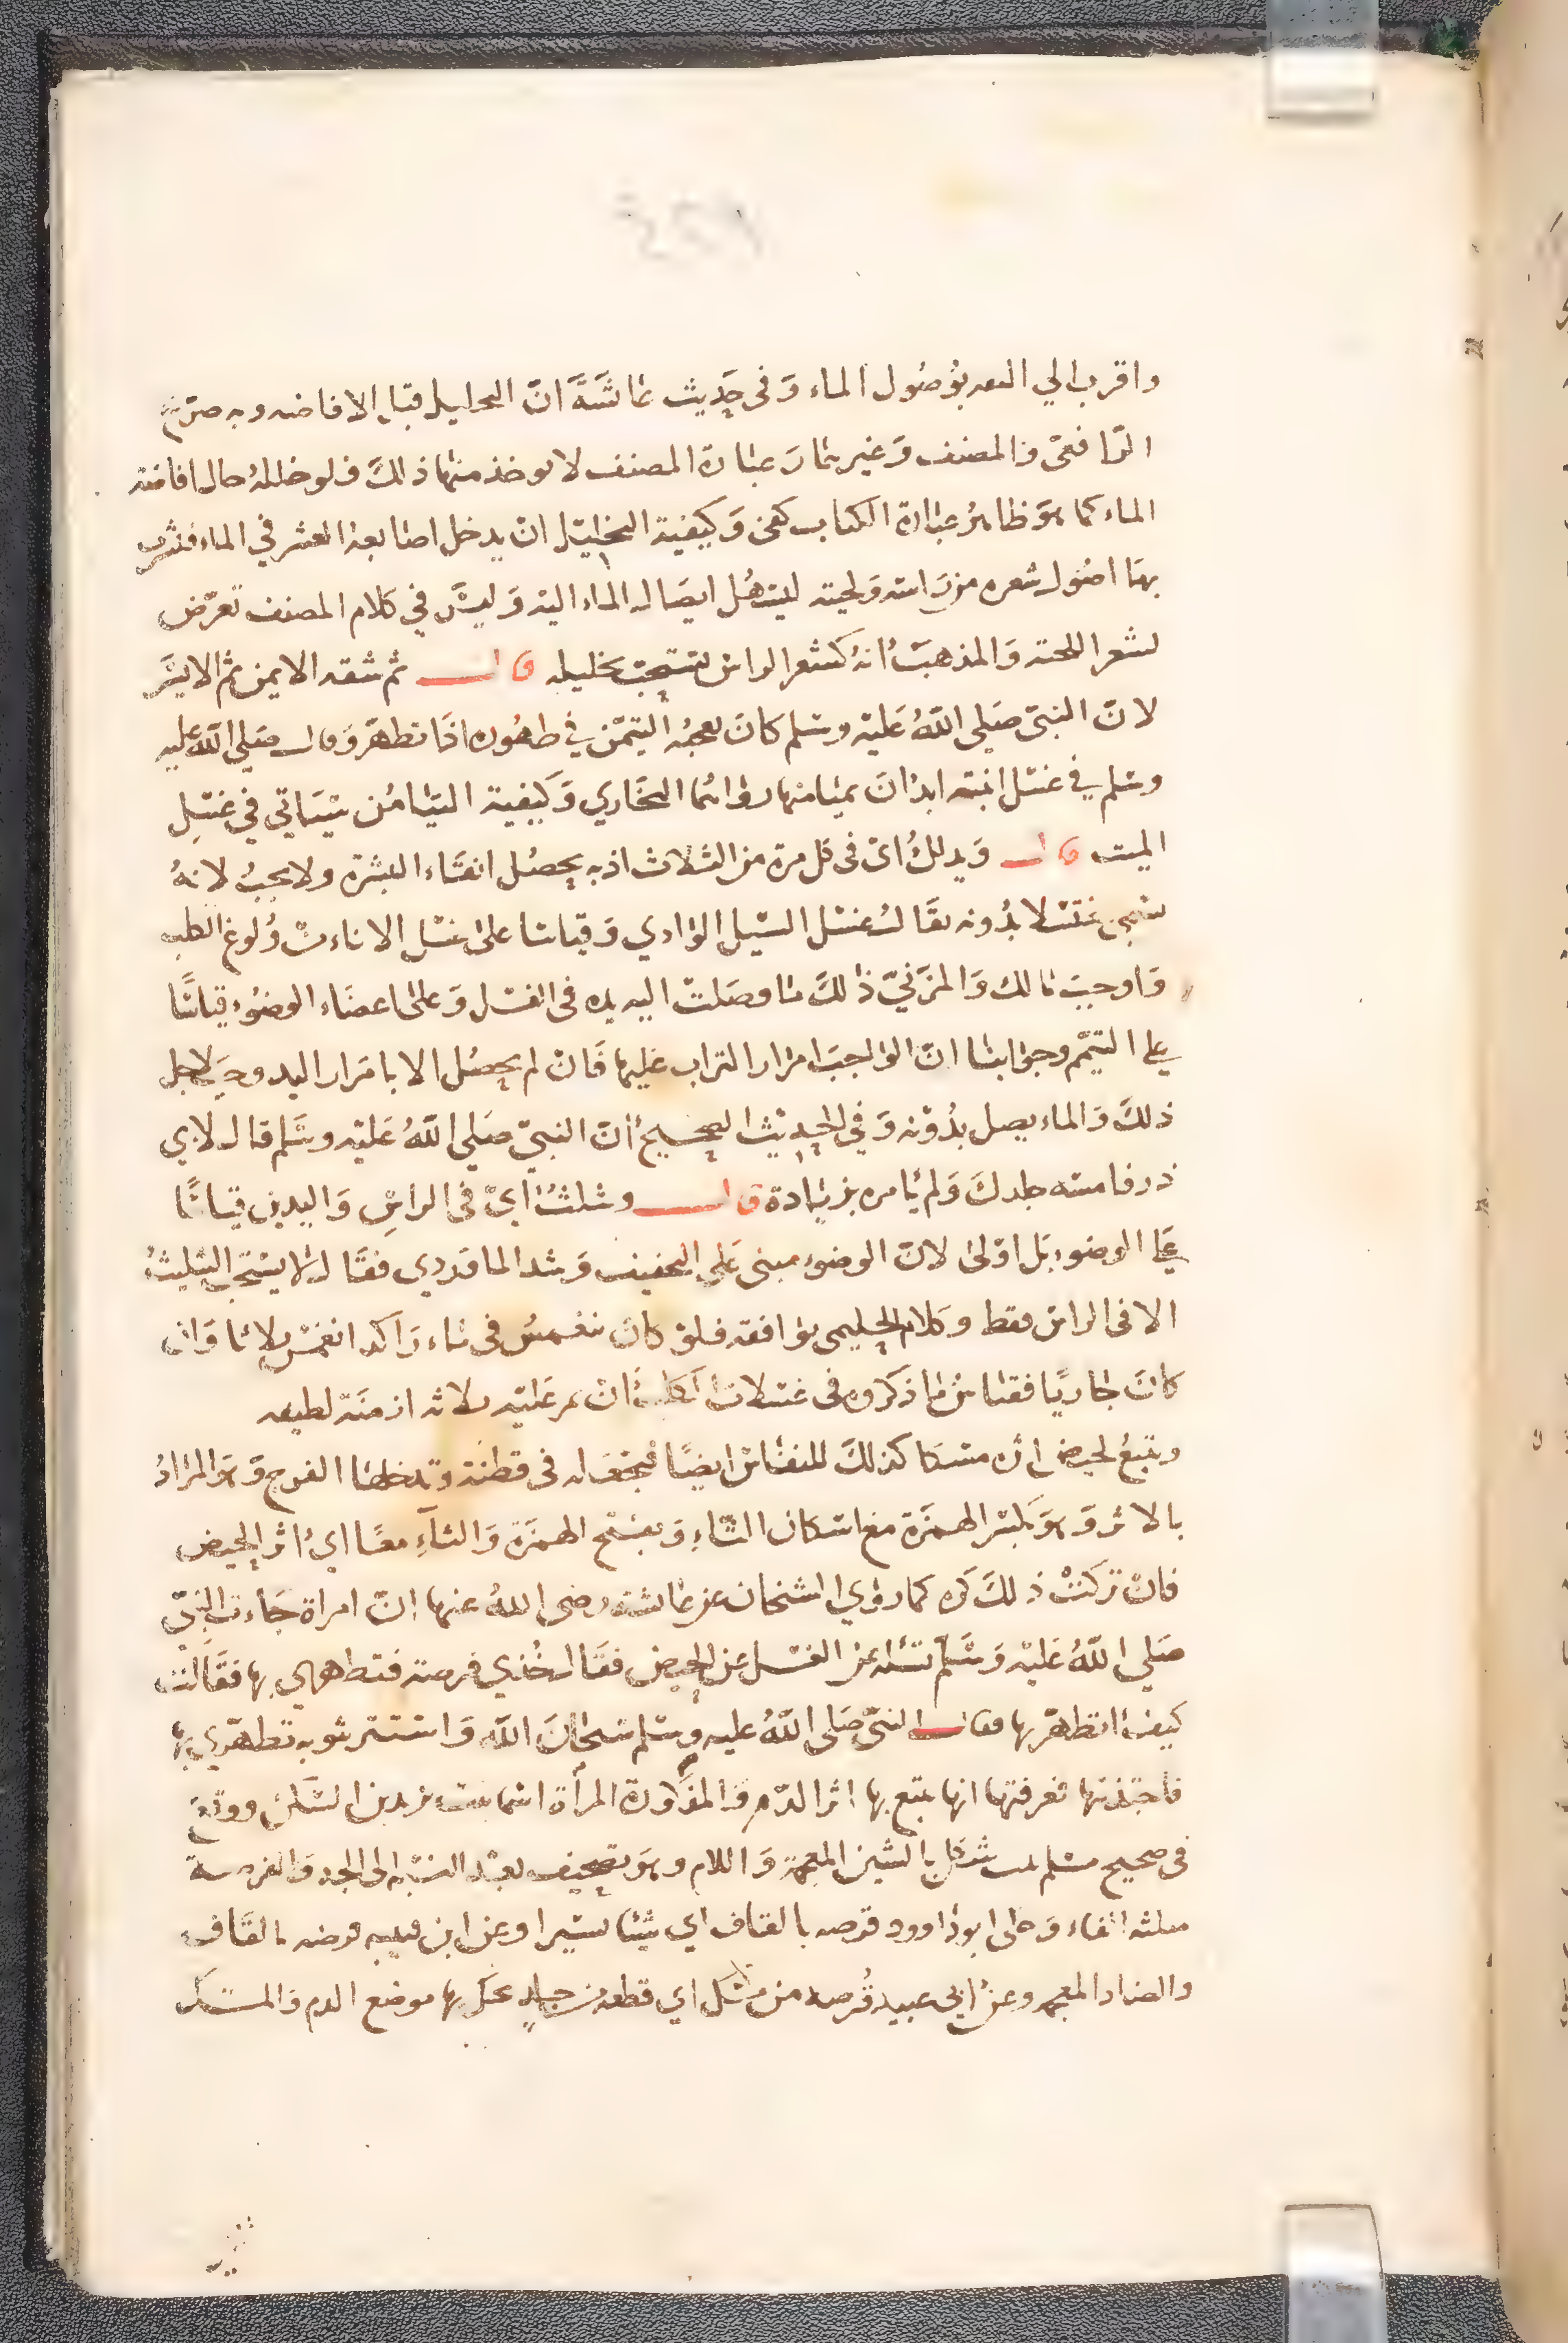 واقرب الي الثقه بوصول الماء وفى حديث عائشة ان التخليل قبل الافاضه وبه صرح
الرافعى والمصنف وغيرهما وعبارة المصنف لا يوخذ منها ذلك فلو خلله حال افاضة
الماء كما هو ظاهر عبارة الكتاب كفى وكيفية التخليل ان يدخل اصابعه العشر في الماء فيشرب
بها اصول شعره من راسه ولحيته ليسهل ايصال الماء اليه وليس في كلام المصنف تعرض
لشعر اللحية والمذهب انه كشعر الراس فيستحب تخليله قال ثم شقه الايمن ثم الايسر
لان النبى صلى الله عليه وسلم كان يعجبه التيمن في طهوره اذا تطهر وقال صلي الله عليه
وسلم في غسل ابنته ابدان بميامنها رواهما البخاري وكيفية التيامن سياتي في غسل
الميت قال ويدلك اى فى كل مرة من الثلاث اذ به يحصل انقاء البشرة ولا يجب لانه
يسمى غسلا بدونه يقال غسل السيل الوادي وقياسا على غسل الاناء من ولوغ الكلب
واوجب مالك والمزنيّ ذلك ما وصلت اليه يده فى الغسل وعلى اعضاء الوضوء قياسًا
على التيمم وجوابنا ان الواجب امرار التراب عليها فان لم يحصل الا بامرار اليد وجب لاجل
ذلك والماء يصل بدونه وفي الحديث الصحيح أن النبيّ صلي الله عليه وسلم قال لابي
ذر فامسه جلدك ولم يامره بزيادة قال ويثلث أى فى الراس واليدين قياسًا
على الوضوء بل اولى لان الوضوء مبنى على التخفيف وشذ الماوردي فقال لا يستحب التثليث
الا فى الراس فقط وكلام الحليمى يوافقه فلو كان ينغمس فى ماء راكد انغمس ثلاثا وان
كان جاريًا فقياس ما ذكروه فى غسلات الكلب ان يمر عليه ثلاثة ازمنة لطيفه
ويتبع لحيض اثره مسكا كذلك للنفاس ايضًا فيجعله فى قطنة وتدخلها الفرج وهو المراد
بالاثر وهو بكسر الهمزة مع اسكان الثاء وبفتح الهمزة والثاء معًا اي اثر الحيض
فان تركت ذلك كره كما روي الشيخان عن عائشة رضى الله عنها ان امراة جاءت النبيّ
صلي الله عليه وسلم تسئله عن الغسل عن الحيض فقال خذي فرصة فتطهري بها فقالت
كيف اتطهر بها فقال النبيّ صلى الله عليه وسلم سبحان الله واستتر بثوبه تطهري بها
فاجتذبتها فعرفتها انها تتبع بها اثر الدم والمرأة اسما بنت يزيد بن السكن ووقع
فى صحيح مسلم بنت شكل بالشين المعجمة واللام وهو تصحيف بعد النسبة الى الجد والفرصة
مثلثه الفاء وحكى ابو داوود قرصه بالقاف اي شيئا يسيرا وعن ابن قتيبه قرضه بالقاف
والضاد المعجمه وعن ابى عبيد قُرصه من مسك اي قطعه من جلد تحك بها موضع الدم والمسك